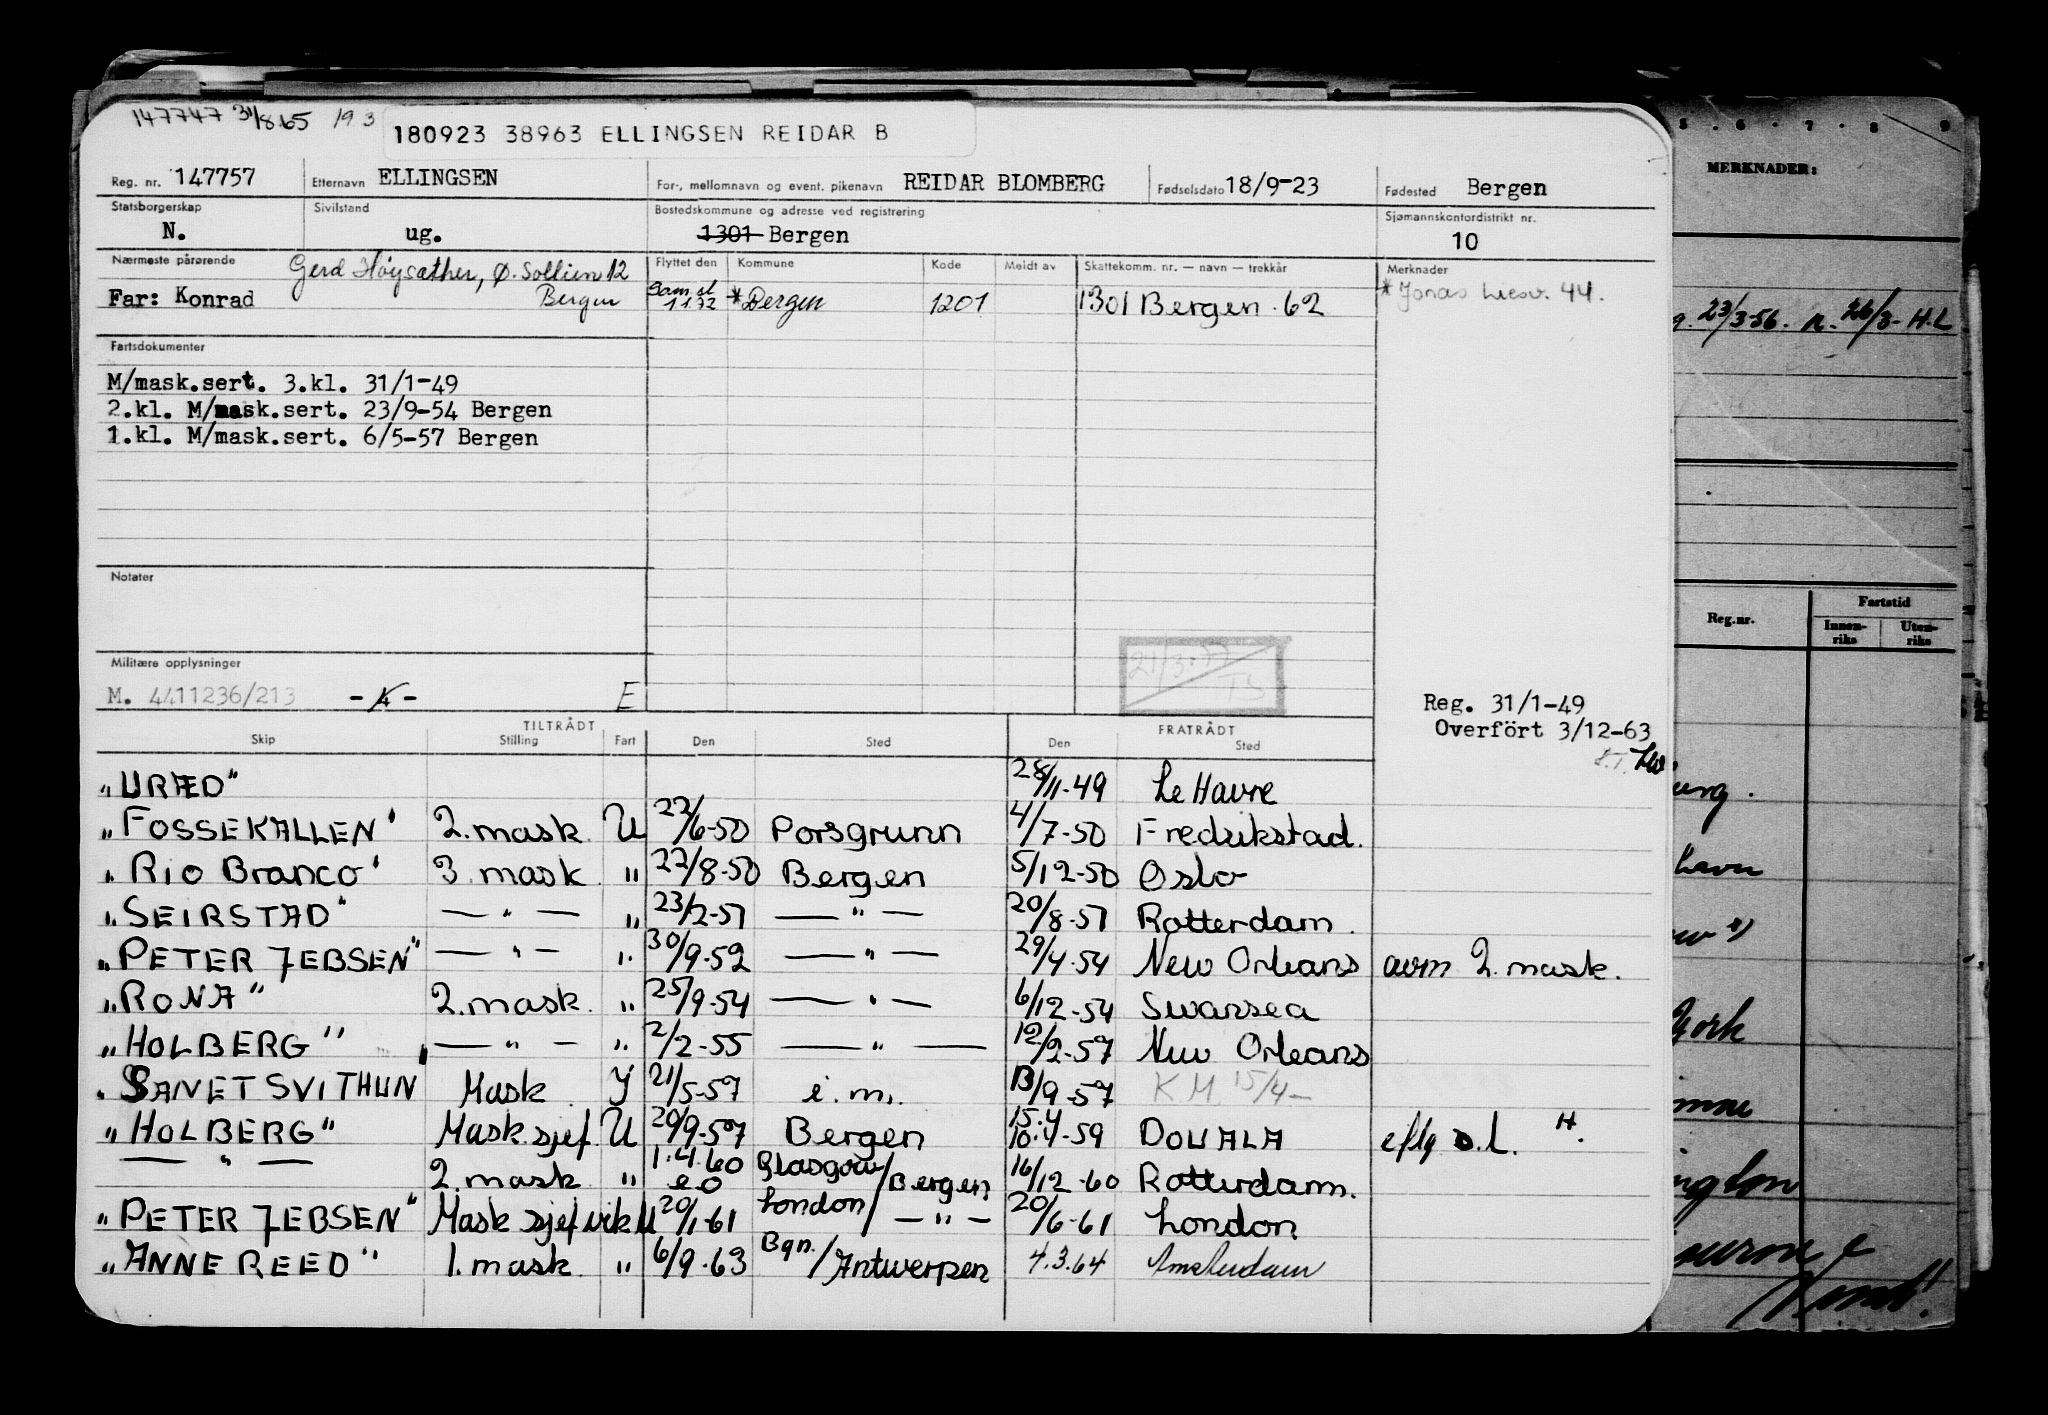 147747 31/8.65 193
180923 38963 ELLINGSEN REIDAR B
Reg. nr. 147757 Etternavn ELLINGSEN For-, mellomnavn og event. pikenavn REIDAR BLOMBERG Fødselsdato 18/9-23 Fødested Bergen
Statsborgerskap Sivilstand Bostedskommune og adresse ved registrering Sjømannskontordistrikt nr.
N. ug. 1301 Bergen 10
Nærmeste pårørende Gerd Høysæther, Ø. Sollien 12 Flyttet den Kommune Kode Meldt av Skattekomm. nr. — navn — trekkår Merknader
Far: Konrad Bergen 1.1.72 *Bergen 1201 1301 Bergen . 62 *Jonas Liesv. 44.
Fartsdokumenter
M/mask.sert. 3.kl. 31/1-49
2.kl. M/mask.sert. 23/9-54 Bergen
1.kl. M/mask.sert. 6/5-57 Bergen
Notater
Militære opplysninger 21/3-77 TS
M. 4411236/213 -4- E
Reg. 31/1-49
Overfört 3/12-63
TILTRÅDT FRATRÅDT
Skip Stilling Fart Den Sted Den Sted
"URÆD" 28/11-49 Le Havre
"FOSSEKALLEN" 2. mask. U 22/6-50 Porsgrunn 4/7-50 Fredrikstad.
"Rio Branco" 3. mask. " 22/8-50 Bergen 5/12-50 Oslo
"SEIRSTAD" — " — " 23/2-51 — " — 20/8-51 Rotterdam.
"PETER JEBSEN" — " — " 30/9-52 — " — 29/4-54 New Orleans avm 2. mask.
"RONA" 2. mask. " 25/9-54 — " — 6/12-54 Swansea
"HOLBERG" — " — " 2/2-55 — " — 12/2-57 New Orleans
"SANKT SVITHUN" Mask. I 21/5-57 i.m. 13/9-57 K.M. 15/4-
"HOLBERG" Mask.sjef. U 20/9-57 Bergen 15.4 10.4-59 DOUALA eftg s.l. H.
— " — 2. mask. " 1.4.60 Glasgow/Bergen 16/12-60 Rotterdam.
"PETER JEBSEN" Mask.sjef vik U 20/1-61 London/ — " — 20/6-61 London
"ANNE REED" 1. mask. " 6/9-63 Bgn./Antwerpen 4.3.64 Amsterdam
5 . 6 . 7 . 8 9
MERKNADER:
23/3-56. n. 26/3- H.L
Reg.nr. Fartstid
Innen-riks Uten-riks